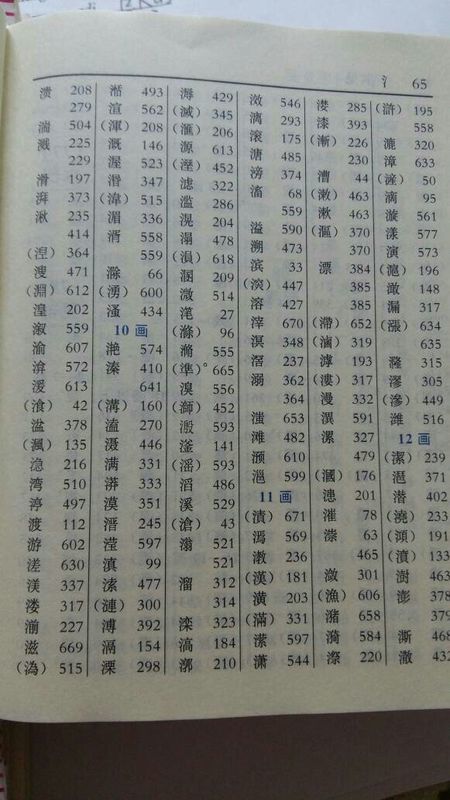 氵 65
溃 208
279
湍 504
溅 225
229
滑 197
湃 373
湫 235
414
(湼) 364
溲 471
(淵) 612
湟 202
溆 559
渝 607
渰 572
湲 613
(湌) 42
湓 378
(渢) 135
㴔 216
湾 510
渟 497
渡 112
游 602
溠 630
渼 337
溇 317
湔 227
滋 669
(溈) 515
湉 493
渲 562
(渾) 208
溉 146
渥 523
湣 347
(湋) 515
湄 336
湑 558
559
滁 66
(湧) 600
溞 434
10 画
滟 574
溱 410
641
(溝) 160
溘 270
滠 446
满 331
漭 333
漠 351
溍 245
滢 597
滇 99
溹 477
(漣) 300
溥 392
滆 154
溧 298
溽 429
(滅) 345
(滙) 206
源 613
(溼) 452
滤 322
滥 286
滉 204
溻 478
(溳) 618
溷 209
溦 514
滗 27
(滌) 96
滫 555
(準)° 665
溴 556
(溮) 452
溵 593
滏 141
(滛) 593
滔 486
溪 529
(滄) 43
滃 521
521
溜 312
314
滦 323
滈 184
漷 210
546
漓 293
滚 175
溏 485
滂 374
滀 68
559
溢 590
溯 473
滨 33
447
溶 427
滓 670
溟 348
滘 237
溺 362
364
滍 653
滩 482
滪 610
599
11 画
(漬) 671
漹 569
漖 236
(漢) 181
潢 203
(滿) 331
潆 597
潇 544
漤 285
漆 393
(漸) 226
230
漕 44
(潄) 463
漱 463
(漚) 370
370
漂 384
385
385
(滯) 652
(滷) 319
滹 193
(漊) 317
漫 332
潩 591
漯 327
479
(漍) 176
漶 201
漼 78
漴 63
465
潋 301
(漁) 606
潴 658
漪 584
漈 220
(滸) 195
558
漉 320
漳 633
(滻) 50
滴 95
漩 561
漾 577
演 573
(滬) 196
澉 148
漏 317
(漲) 634
635
漋 315
漻 305
(滲) 449
潍 516
12 画
(潔) 239
潖 371
潜 402
(澆) 233
(澒) 191
(濆) 133
澍 463
澎 378
379
澌 468
潵 432